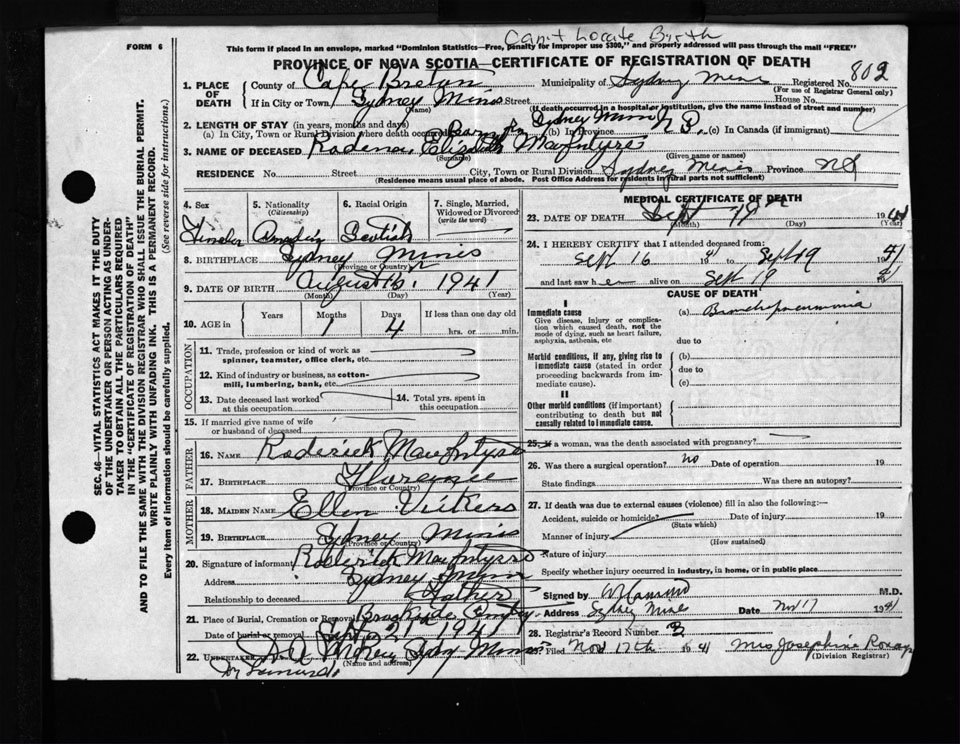 Can't Locate Birth
FORM 6
This form if placed in an envelope, marked "Dominion Statistics—Free, penalty for improper use $300," and properly addressed will pass through the mail "FREE"
PROVINCE OF NOVA SCOTIA—CERTIFICATE OF REGISTRATION OF DEATH
SEC. 46—VITAL STATISTICS ACT MAKES IT THE DUTY
OF THE UNDERTAKER OR PERSON ACTING AS UNDER-
TAKER TO OBTAIN ALL THE PARTICULARS REQUIRED
IN THE "CERTIFICATE OF REGISTRATION OF DEATH"
AND TO FILE THE SAME WITH THE DIVISION REGISTRAR WHO SHALL ISSUE THE BURIAL PERMIT.
WRITE PLAINLY WITH UNFADING INK. THIS IS A PERMANENT RECORD.
Every item of Information should be carefully supplied. (See reverse side for instructions.)
1. PLACE OF DEATH County of Cape Breton Municipality of Sydney Mines Registered No. 802
(For use of Registrar General only)
If in City or Town Sydney Mines Street House No.
(Name) (If death occurred in a hospital or institution, give the name instead of street and number)
2. LENGTH OF STAY (in years, months and days)
(a) In City, Town or Rural Division where death occurred Sydney Mines (b) In Province (c) In Canada (if immigrant)
3. NAME OF DECEASED Elizabeth MacIntyre
(Surname) (Given name or names)
RESIDENCE No. Street City, Town or Rural Division Sydney Mines Province NS
(Residence means usual place of abode. Post Office Address for residents in rural parts not sufficient)
4. Sex
5. Nationality (Citizenship)
6. Racial Origin
7. Single, Married, Widowed or Divorced (write the word)
Scotish
8. BIRTHPLACE Sydney Mines
(Province or Country)
9. DATE OF BIRTH August 1941
(Month) (Day) (Year)
10. AGE in Years Months Days If less than one day old
1 4 hrs. or min.
OCCUPATION
11. Trade, profession or kind of work as spinner, teamster, office clerk, etc.
12. Kind of industry or business, as cotton-mill, lumbering, bank, etc.
13. Date deceased last worked at this occupation
14. Total yrs. spent in this occupation
15. If married give name of wife or husband of deceased
FATHER
16. NAME Roderick MacIntyre
17. BIRTHPLACE Florence
(Province or Country)
MOTHER
18. MAIDEN NAME Ellen Vickers
19. BIRTHPLACE Sydney Mines
(Province or Country)
20. Signature of informant Roderick MacIntyre
Address Sydney Mines
Relationship to deceased Father
21. Place of Burial, Cremation or Removal Brookside
Date of burial or removal 1941
22. UNDERTAKER
(Name and address)
MEDICAL CERTIFICATE OF DEATH
23. DATE OF DEATH Sept 19 1941
(Month) (Day) (Year)
24. I HEREBY CERTIFY that I attended deceased from:
Sept 16 41 to Sept 19 1941
and last saw her alive on Sept 19 41
CAUSE OF DEATH
I
Immediate cause (a) Bronchopneumonia
Give disease, injury or complication which caused death, not the mode of dying, such as heart failure, asphyxia, asthenia, etc
due to
Morbid conditions, if any, giving rise to immediate cause (stated in order proceeding backwards from immediate cause).
(b)
due to
(c)
II
Other morbid conditions (if important) contributing to death but not causally related to immediate cause.
25. If a woman, was the death associated with pregnancy?
26. Was there a surgical operation? no Date of operation 19
State findings Was there an autopsy?
27. If death was due to external causes (violence) fill in also the following:—
Accident, suicide or homicide? Date of injury 19
(State which)
Manner of injury
(How sustained)
Nature of injury
Specify whether injury occurred in industry, in home, or in public place
Signed by M.D.
Address Sydney Mines Date Nov 17 1941
28. Registrar's Record Number 3
29. Filed Nov 17th 1941 Mrs Josephine
(Division Registrar)